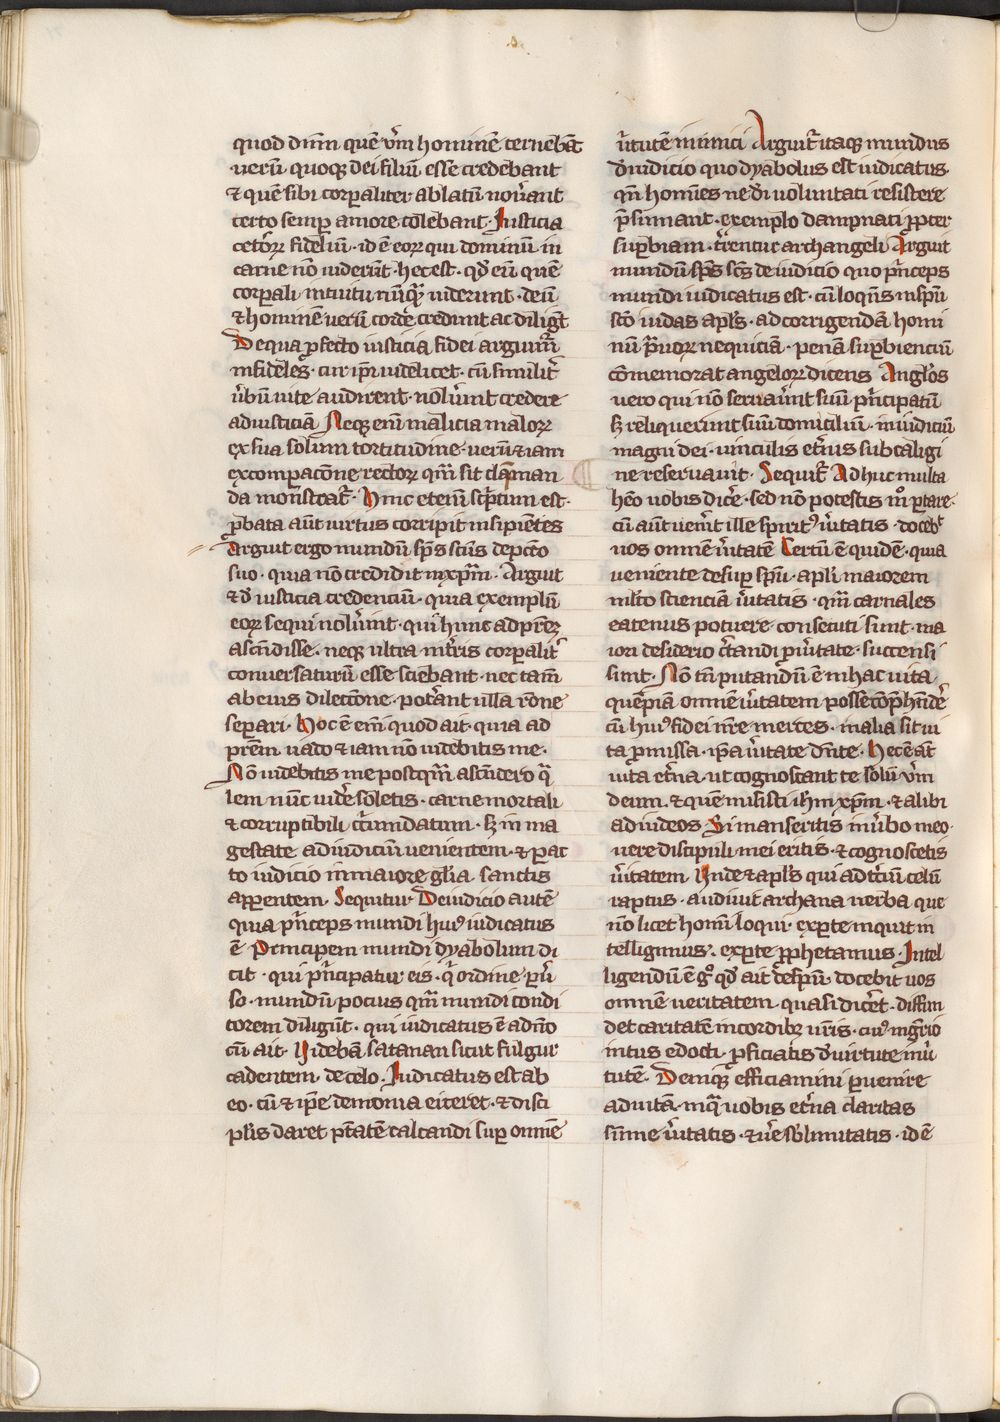 quod dnm̄ quē v̄m hominē cernebāt
uerū quoqꝫ dei filiū esse credebant
⁊ quē sibi corꝑaliter ablatū nouerāt
certo semꝑ amore colebant · Iusticia
cetoꝝ fideliū · id ē eoꝝ qui dominū in
carne nō uiderūt · hec est · qd̓ eū quē
corꝑali intuitu nūqᷓ uiderunt · deū
⁊ hominē uerū corde credunt ac diligūt
De qua ꝓfecto iusticia fidei arguūt᷑
infideles · cur ip̄i uidelicet · cū similit᷑
ūbū uite audirent · noluerīt credere
ad iusticiā Neqꝫ enī malicia maloꝝ
ex sua solum tortitudine · uerū ⁊iam
ex comꝑacōne rectoꝝ qm̄ sit dāpnan
da monstrat᷑ · Hinc etenī sc̄ptum est ·
ꝓbata aūt uirtus corripit insipiētes
Arguit ergo mundū sp̄s sctūs de pctō
suo · quia nō credidit in xp̄m · Arguit
⁊ d̓ iusticia credenciū · quia exemplū
eoꝝ sequi noluerīt · qui hunc ad pr̄eꝫ
ascendisse · neqꝫ ultra int̓ eos corꝑalit᷑
conuersaturū esse sciebant · nec tam̄
ab eius dilectōne · pot̓ant ulla rōne
seꝑari · Hoc ē em̄ quod ait · quia ad
pr̄em uado ⁊ iam nō uidebitis me ·
Nō uidebitis me postqᷓm ascendero qᷓ
lem nūc uid̓e soletis · carne mortali
⁊ corruptibili c̄cūmdatum · sꝫ in ma
gestate ad iudiciū uenientem · ⁊ ꝑac
to iudicio in maiore gl̄ia sanctis
apꝑentem · Sequitur De iudicio autē
quia pͥnceps mundi huiꝰ iudicatus
ē Principem mundi dyabolum di
cit · qui pͥncipatur eis · qͥ ordine ꝑūͥ
so · mundū pocius qᷓm mundi condi
torem diligūt · qui iudicatus ē a dn̄o
cū ait · Uidebā satanan sicut fulgur
cadentem · de celo · Iudicatus est ab
eo · cū ⁊ ip̄e demonia eiceret · ⁊ disci
pl̄is daret ptātē calcandi suꝑ omnē
ūtutē inimici Arguit᷑ itaqꝫ mundus
d̓ iudicio quo dyabolus est iudicatus ·
qn̄ homīes ne di̓ uoluntati resistere
p̄sumant · exemplo dampnati ꝓpter
suꝑbiam · t̓rentur archangeli Arguit
mundū sp̄s sc̄s de iudicio quo pͥnceps
mundi iudicatus est · cū loqn̄s in sp̄u
sc̄o iudas apl̄s · ad corrigendā homi
nū pͣuoꝝ nequiciā · penā suꝑbienciū
cōmemorat angeloꝝ dicens Anglōs
uero qui nō seruauerīt suū pͥncipatū
sꝫ reliquerunt suū domiciliū · in iudiciū
magni dei · uinculis et̓nis sub caligi
ne reseruauit · Sequit᷑ Adhuc multa
heō uobis dic̓e · sed nō potestis mͦ portare ·
cū aūt uen̓it ille spiritꝰ ūitatis · docebͭ
uos omnē ūitatē Certū ē quidē · quia
ueniente desuꝑ sp̄u · apl̄i maiorem
ml̄to scienciā ūitatis · qm̄ carnales
eatenus potuere · consecuti sunt · ma
iori desiderio c̓tandi ꝓ ūitate · succensi
sunt · Nō tn̄ putandū ē in hac uita
quēpiā omnē ūitatem posse cōp̄hend̓e
cū huiꝰ fidei nr̄e merces · in alia sit ui
ta ꝓmissa · ip̄a ūitate dn̄te · Hec ē aūt
uita et̓na · ut cognoscant te solū v̄m
deum · ⁊ quē misisti ih̄m xp̄m · ⁊ alibi
ad iudeos Si manseritis in ūbo meo ·
uere discipuli mei eritis · ⁊ cognoscetis
ūitatem Unde ⁊ apl̄s qui ad t̓ciū celū
raptus · audiuit archana uerba que
nō licet homī loqui · ex parte inquit in
telligimus · ex parte ꝓphetamus · Intel
ligendū ē gͦ qd̓ ait de sp̄u · docebit uos
omnē ueritatem · quasi dic̓et · diffun
det caritatē in cordibꝫ ur̄is · cuiꝰ mgr̄io
intus edocti · ꝓficiatis d̓ uirtute in ūͥ
tutē · Deniqꝫ efficiamini ꝑuenire
ad uitā · in qᷓ uobis et̓na claritas
sūme ūitatis · ⁊ ūe sublimitatis · id ē